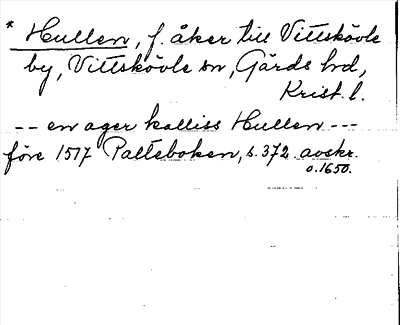 * Hullen, f. åker till Vittskövle
by, Vittskövle sn, Gärds hd,
Krist. l.
-- en ager kalliss Hullen ---
före 1517 Palteboken, s. 372 avskr.
o. 1650.